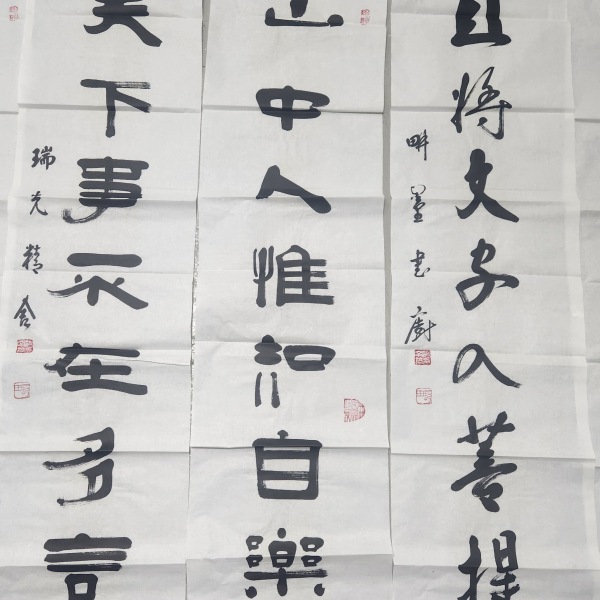 且将文字入菩提
畊墨書廚
山中人惟知自樂
天下事不在多言
瑞光精舍